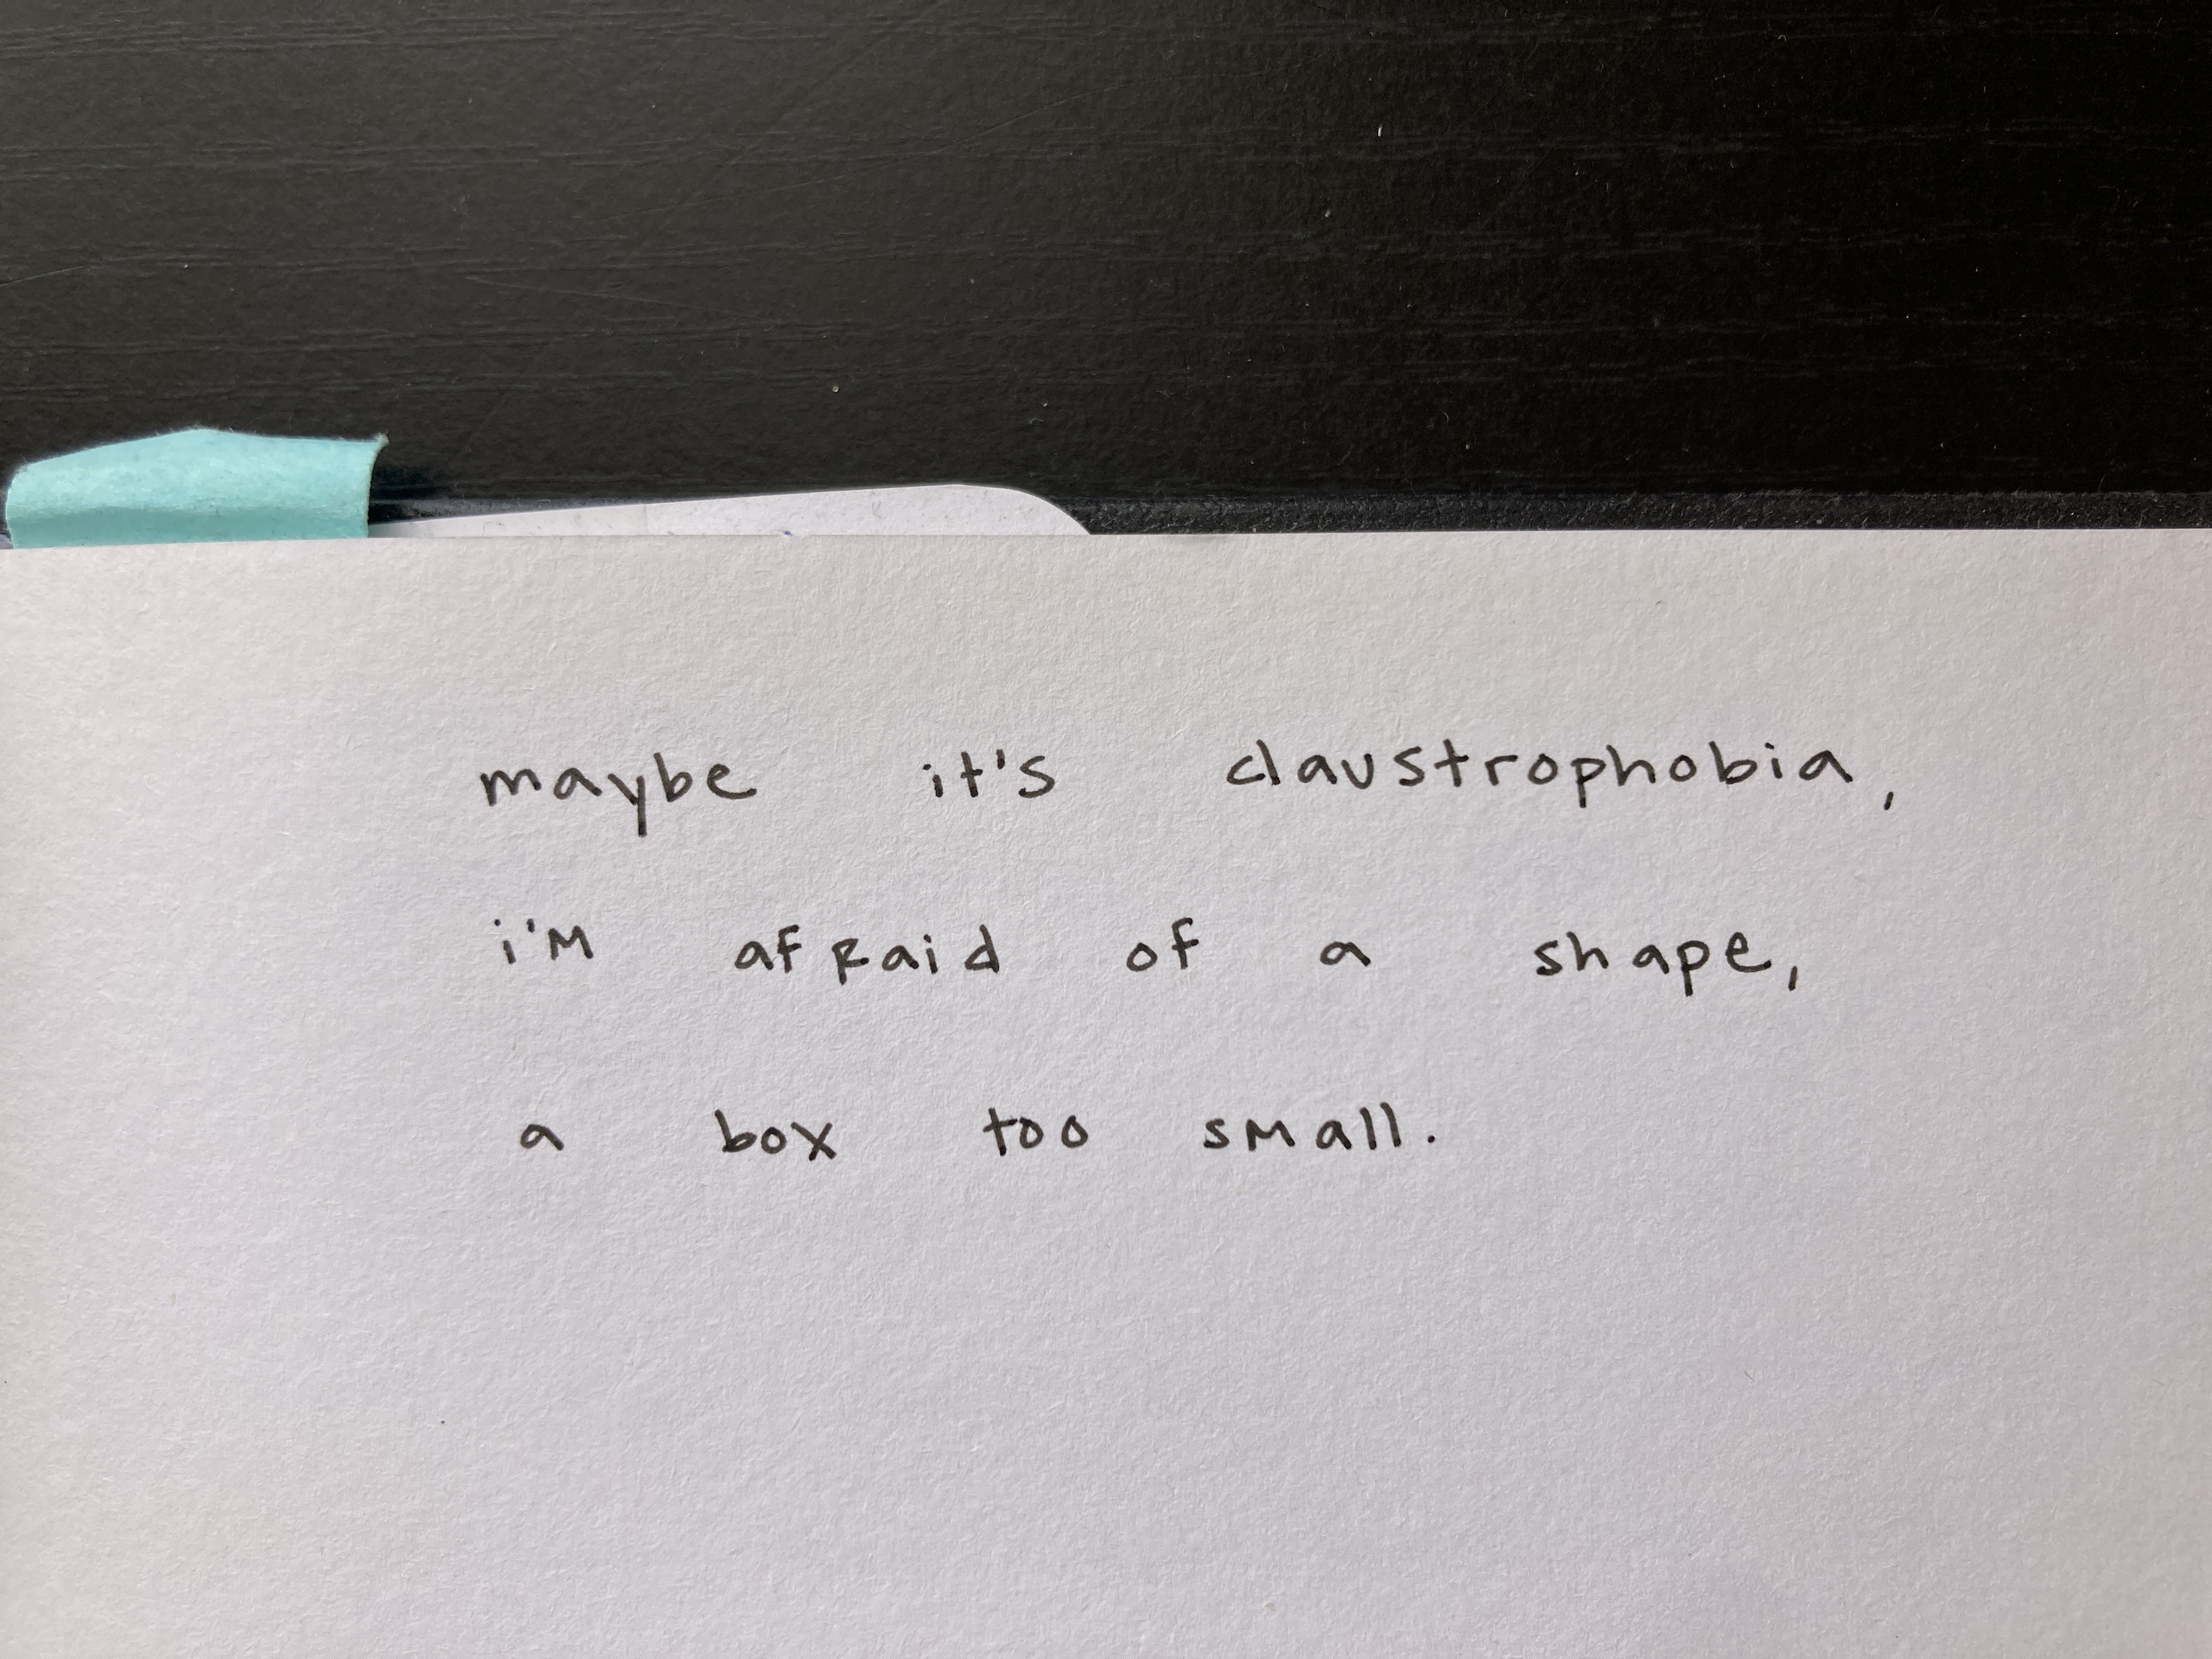 maybe it's claustrophobia,
i'm afraid of a shape,
a box too small.